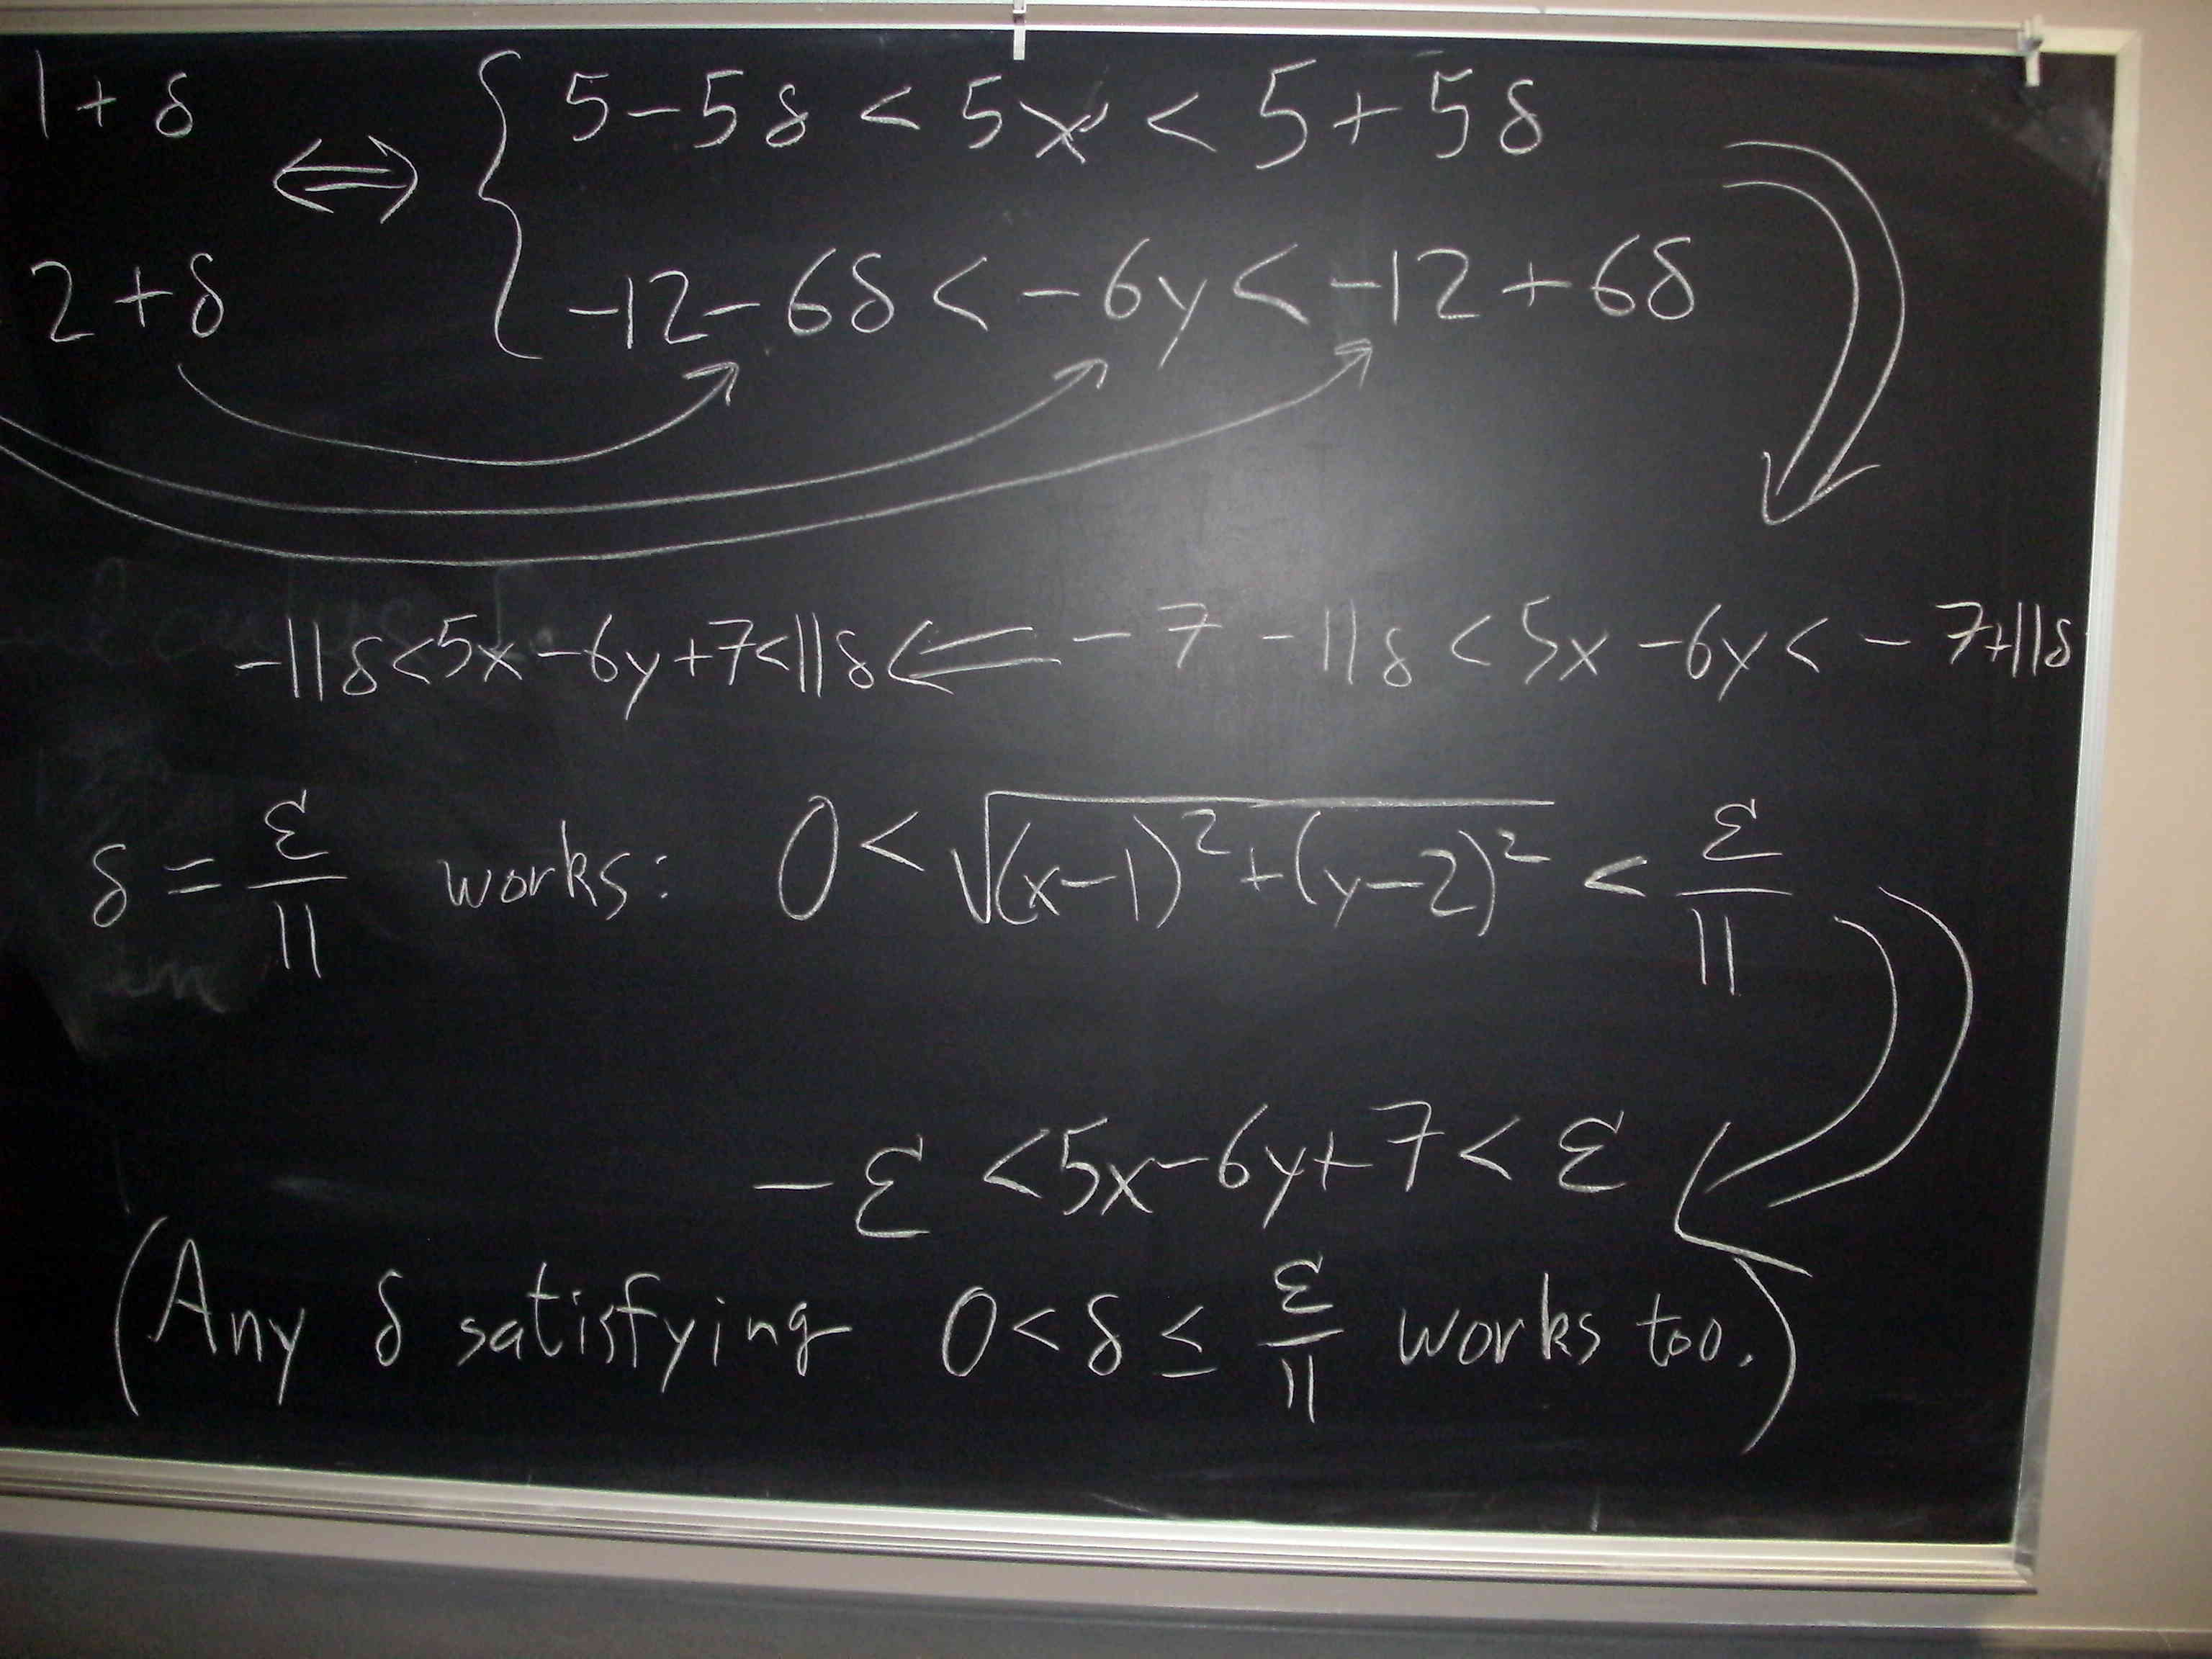 1 + δ ⇔ { 5 - 5δ < 5x < 5 + 5δ
2 + δ -12 - 6δ < -6y < -12 + 6δ
-11δ < 5x - 6y + 7 < 11δ ⇐ -7 - 11δ < 5x - 6y < -7 + 11δ
δ = ε/11 works: 0 < √((x-1)² + (y-2)²) < ε/11
-ε < 5x - 6y + 7 < ε
(Any δ satisfying 0 < δ ≤ ε/11 works too.)